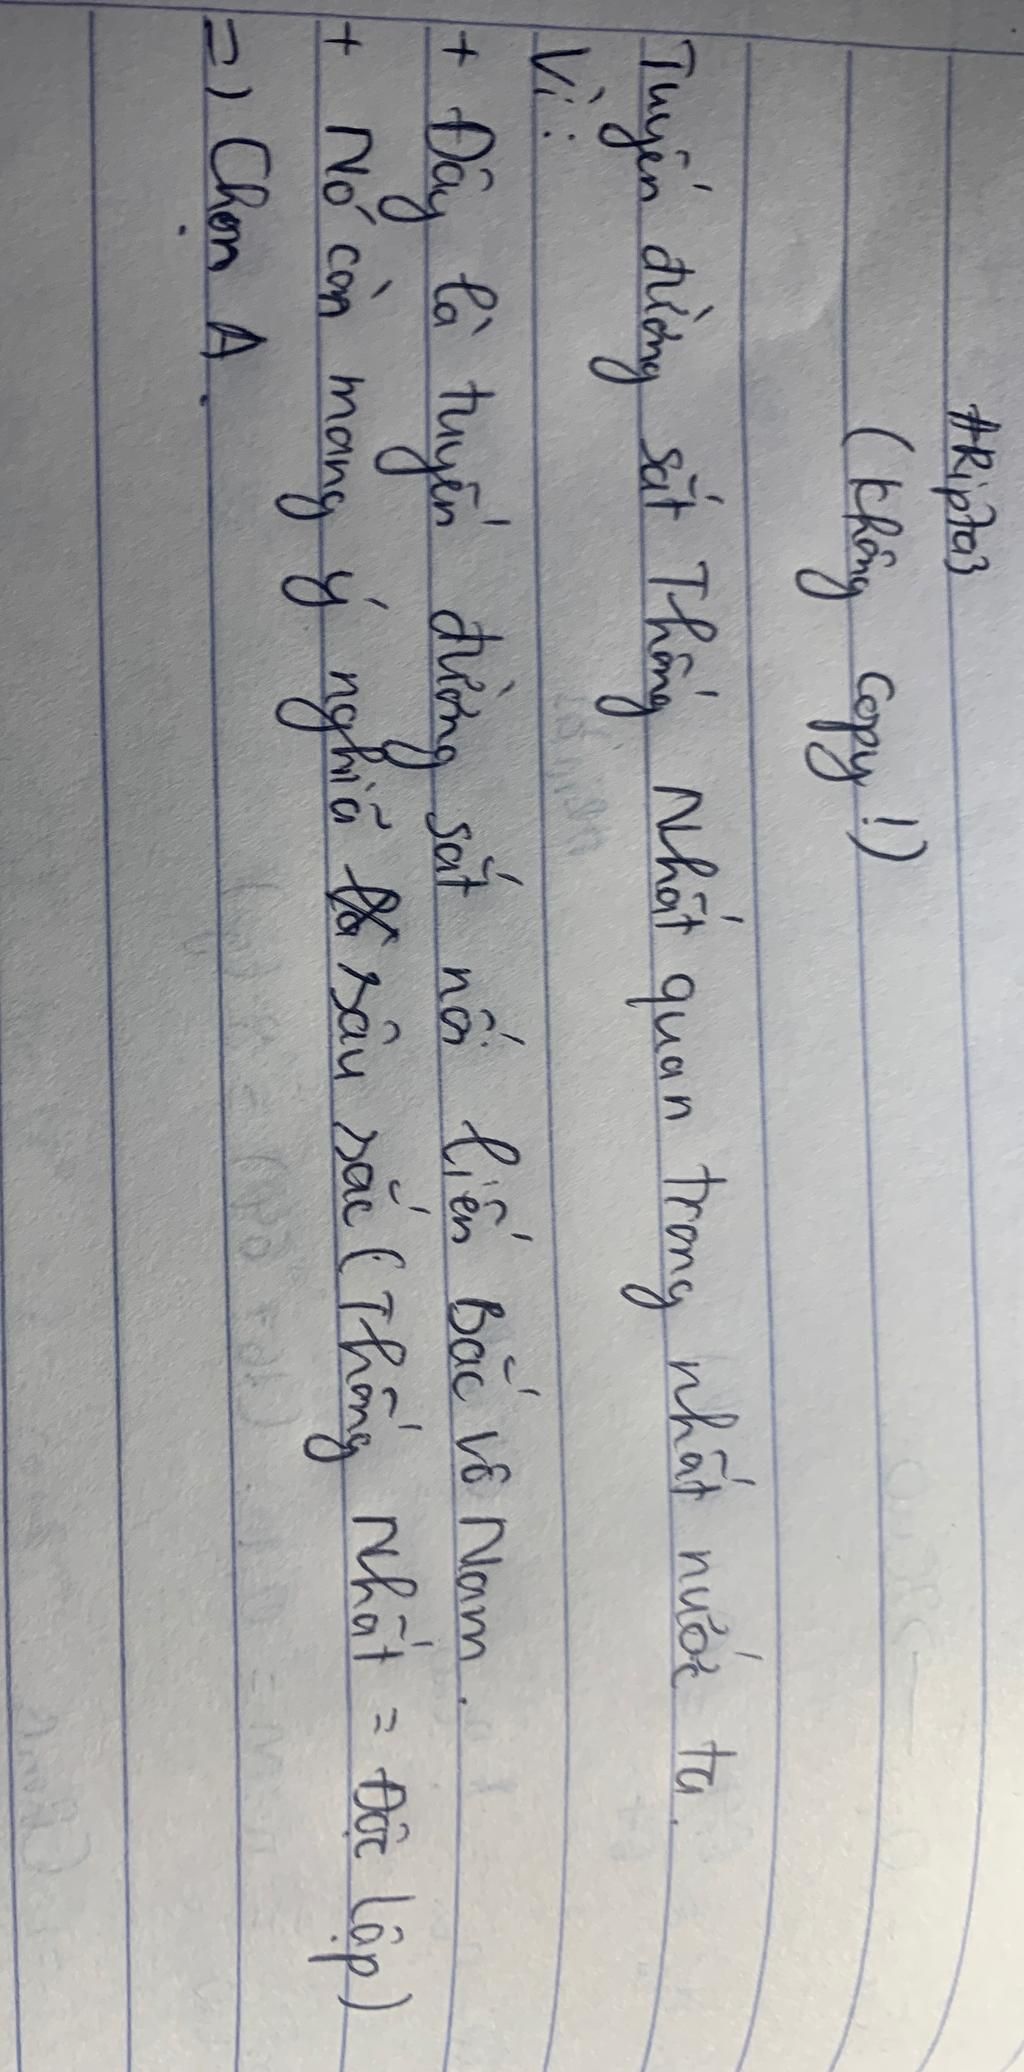 #Ripta3
(Không copy!)
Tuyến đường sắt Thống Nhất quan trong nhất nước ta.
Vì:
+ Đây là tuyến đường sắt nối liền Bắc vô Nam.
+ Nó còn mang ý nghĩa sâu sắc (Thống Nhất = Độc lập)
=) Chọn A.